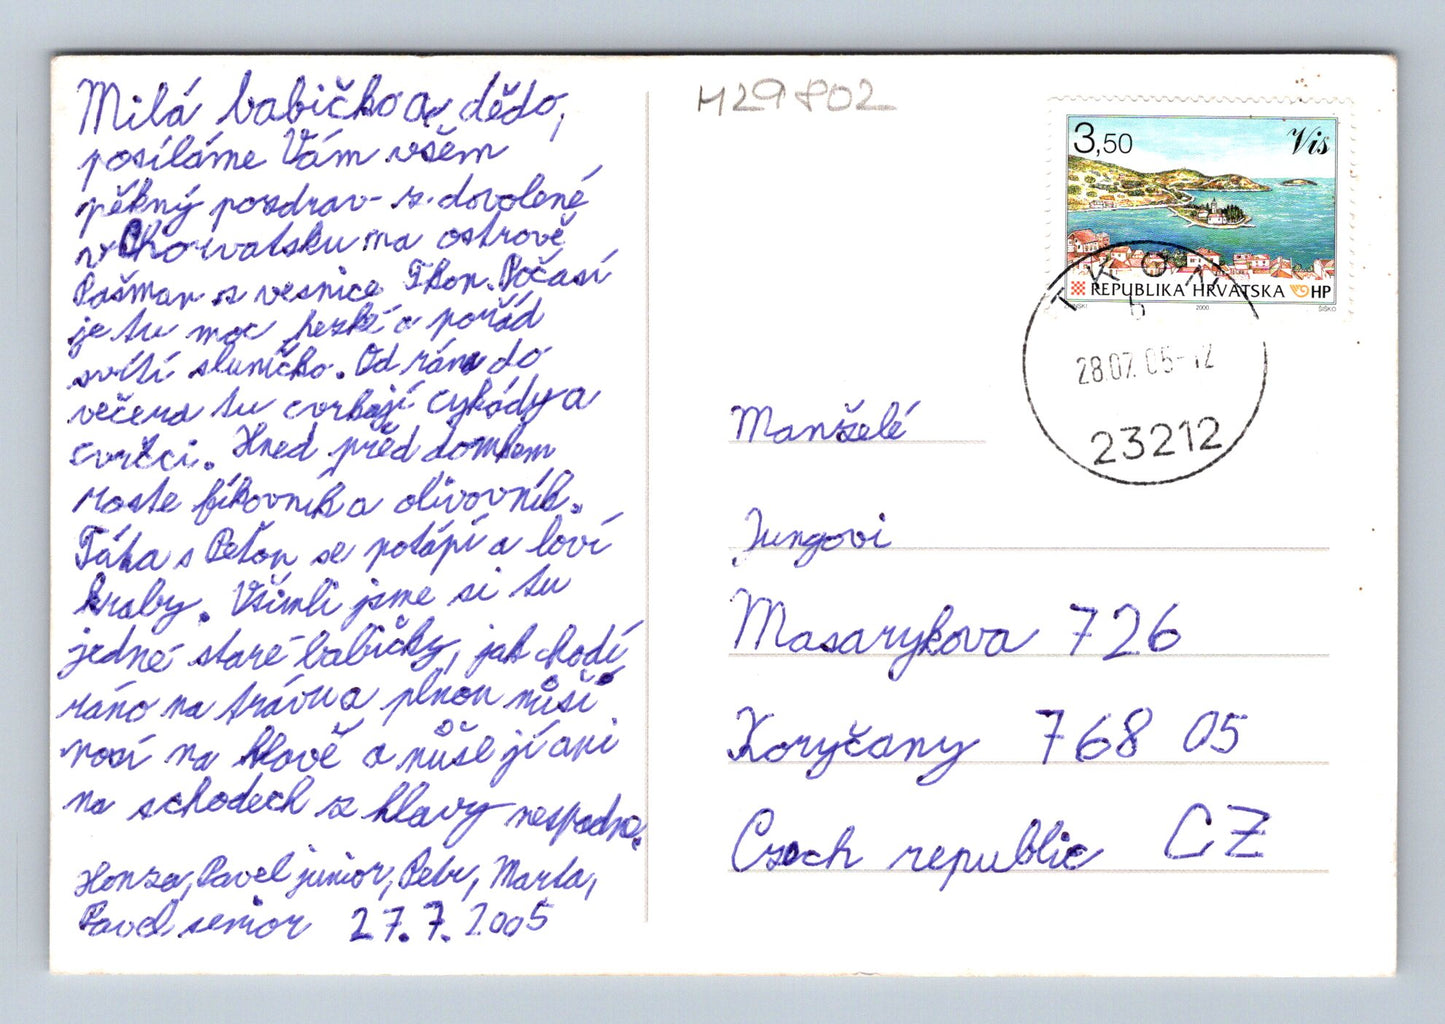 Milá babičko a dědo,
posíláme Vám všem
pěkný pozdrav z dovolené
v Chorvatsku na ostrově
Pašman z vesnice Tkon. Počasí
je tu moc hezké a pořád
svítí sluníčko. Od rána do
večera tu cvrkají cykády a
cvrčci. Hned před domkem
roste fíkovník a olivovník.
Táta s Peťou se potápí a loví
kraby. Všimli jsme si tu
jedné staré babičky, jak chodí
ráno na trávu a plnou nůši
nosí na hlavě a nůše jí ani
na schodech z hlavy nespadne.
Honza, Pavel junior, Petr, Marta,
Pavel senior 27.7.2005
H29802
3,50 Vis
REPUBLIKA HRVATSKA HP
2000 ŠIŠKO
TKON
b
28.07.05-12
23212
Manželé
Jungovi
Masarykova 726
Koryčany 768 05
Czech republic CZ